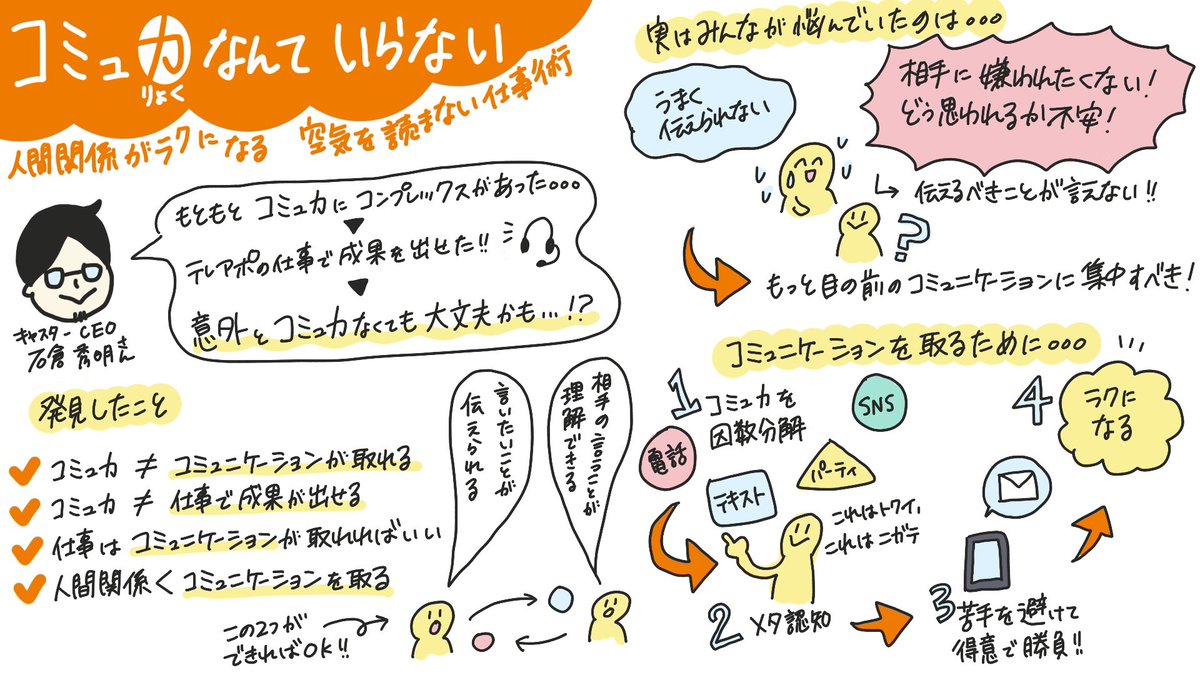 コミュ力なんていらない
りょく
人間関係がラクになる 空気を読まない仕事術
もともとコミュ力にコンプレックスがあった・・・
テレアポの仕事で成果を出せた!!
意外とコミュ力なくても大丈夫かも…!?
キャスターCEO
石倉秀明さん
発見したこと
コミュ力 ≠ コミュニケーションが取れる
コミュ力 ≠ 仕事で成果が出せる
仕事はコミュニケーションが取れればいい
人間関係 < コミュニケーションを取る
相手の言うことが
理解できる
言いたいことが
伝えられる
この2つが
できればOK!!
実はみんなが悩んでいたのは・・・
うまく
伝えられない
相手に嫌われたくない!
どう思われるか不安!
伝えるべきことが言えない!!
?
もっと目の前のコミュニケーションに集中すべき!
コミュニケーションを取るために・・・
1 コミュ力を
因数分解
電話
テキスト
パーティ
SNS
これはトクイ,
これはニガテ
2 メタ認知
3 苦手を避けて
得意で勝負!!
4 ラクに
なる